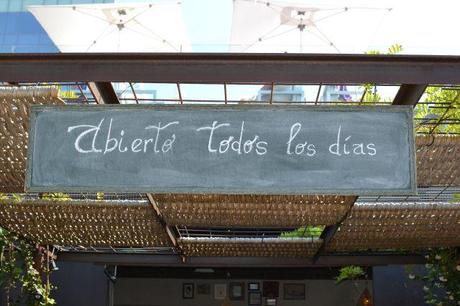 Abierto todos los días